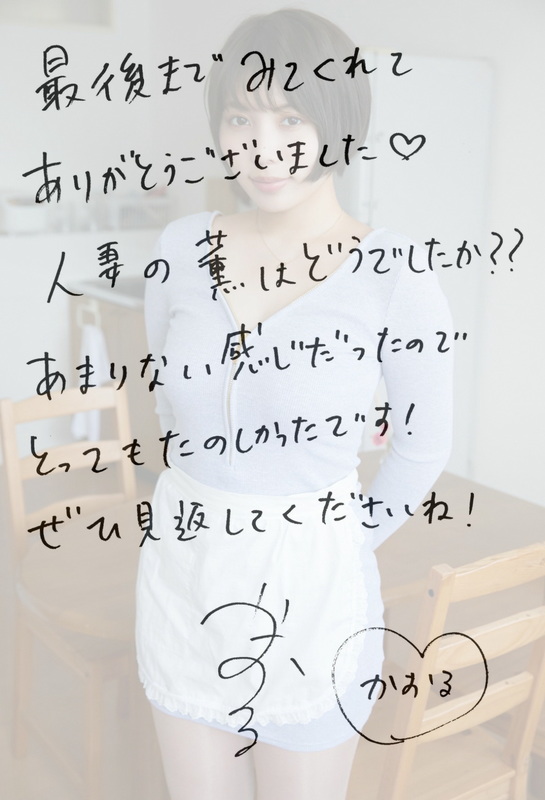 最後まで みてくれて
ありがとうございました♡
人妻の 薫はどうでしたか??
あまりない感じだったので
とってもたのしかったです!
ぜひ見返してくださいね!
かおる
かおる